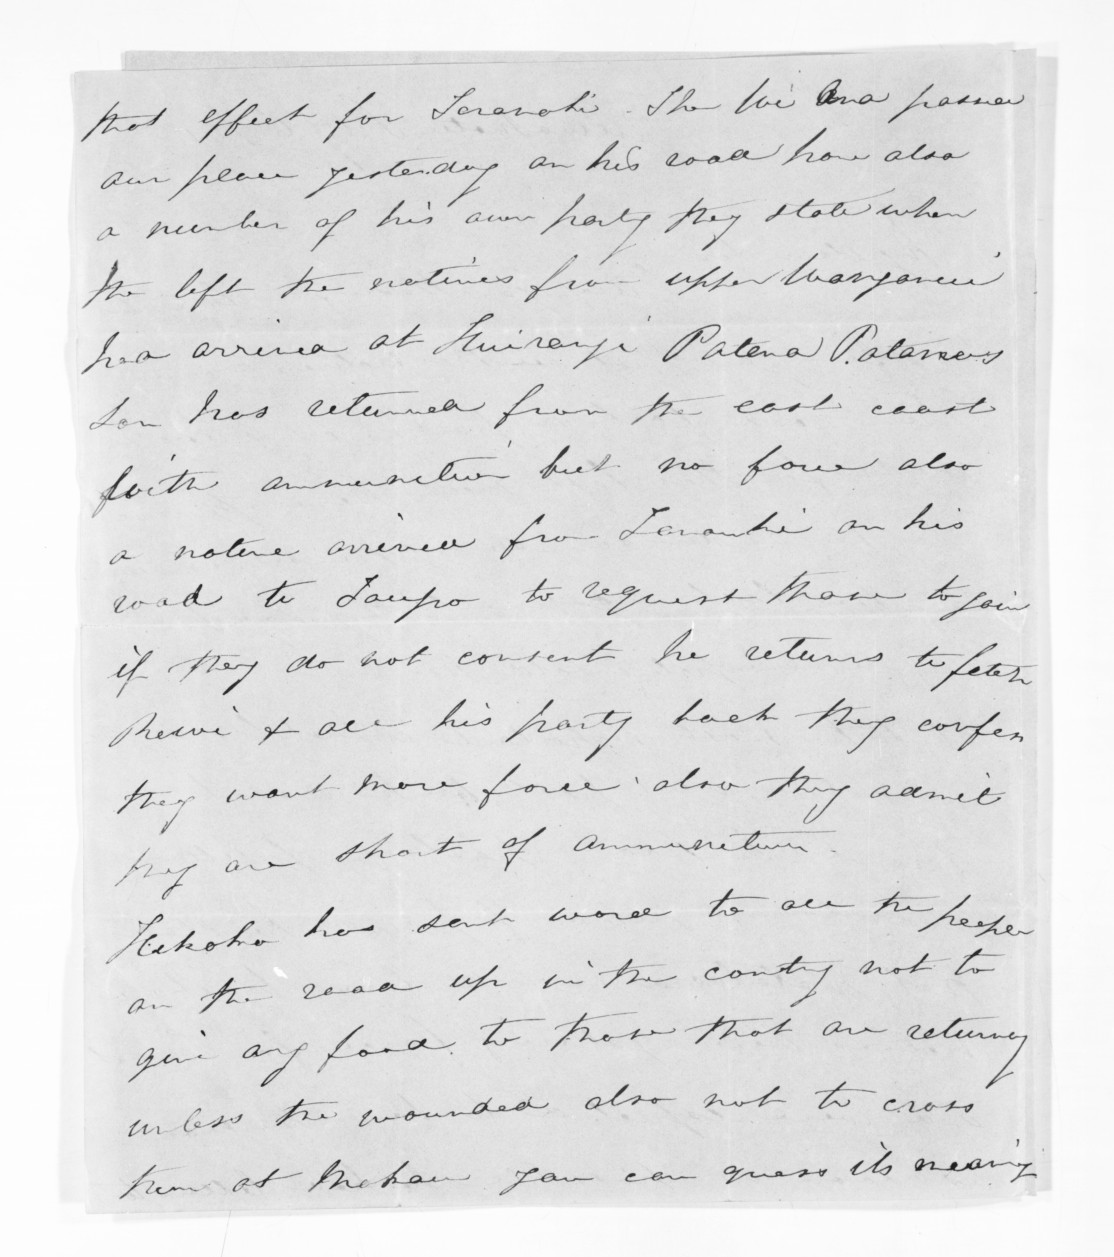 that effect for Taranaki. The Wi Ana passed
our place yesterday on his road how also
a number of his own party they state when
the left the natives from upper Wanganui
had arrived at Huirangi Patena
son has returned from the east coast
with ammunition but no force also
a native arrived from Taranaki on his
road to Taupo to request those to join
if they do not consent he returns to fetch
Rewi & all his party back they confess
they want more force also they admit
they are short of ammunition.
Hikaka has sent word to all the people
on the road up in the contry not to
give any food to those that are returng
unless the wounded also not to cross
them at Mokau you can guess its meaning